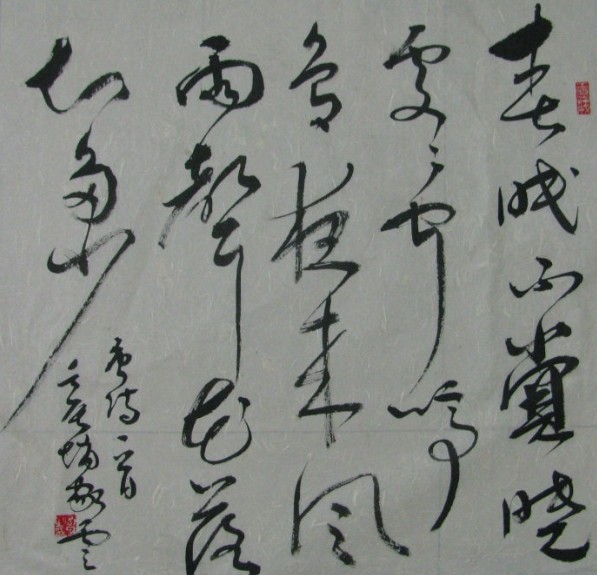 春眠不覺曉
處〻聞啼
鳥夜來風
雨聲花落
知多少
唐詩一首